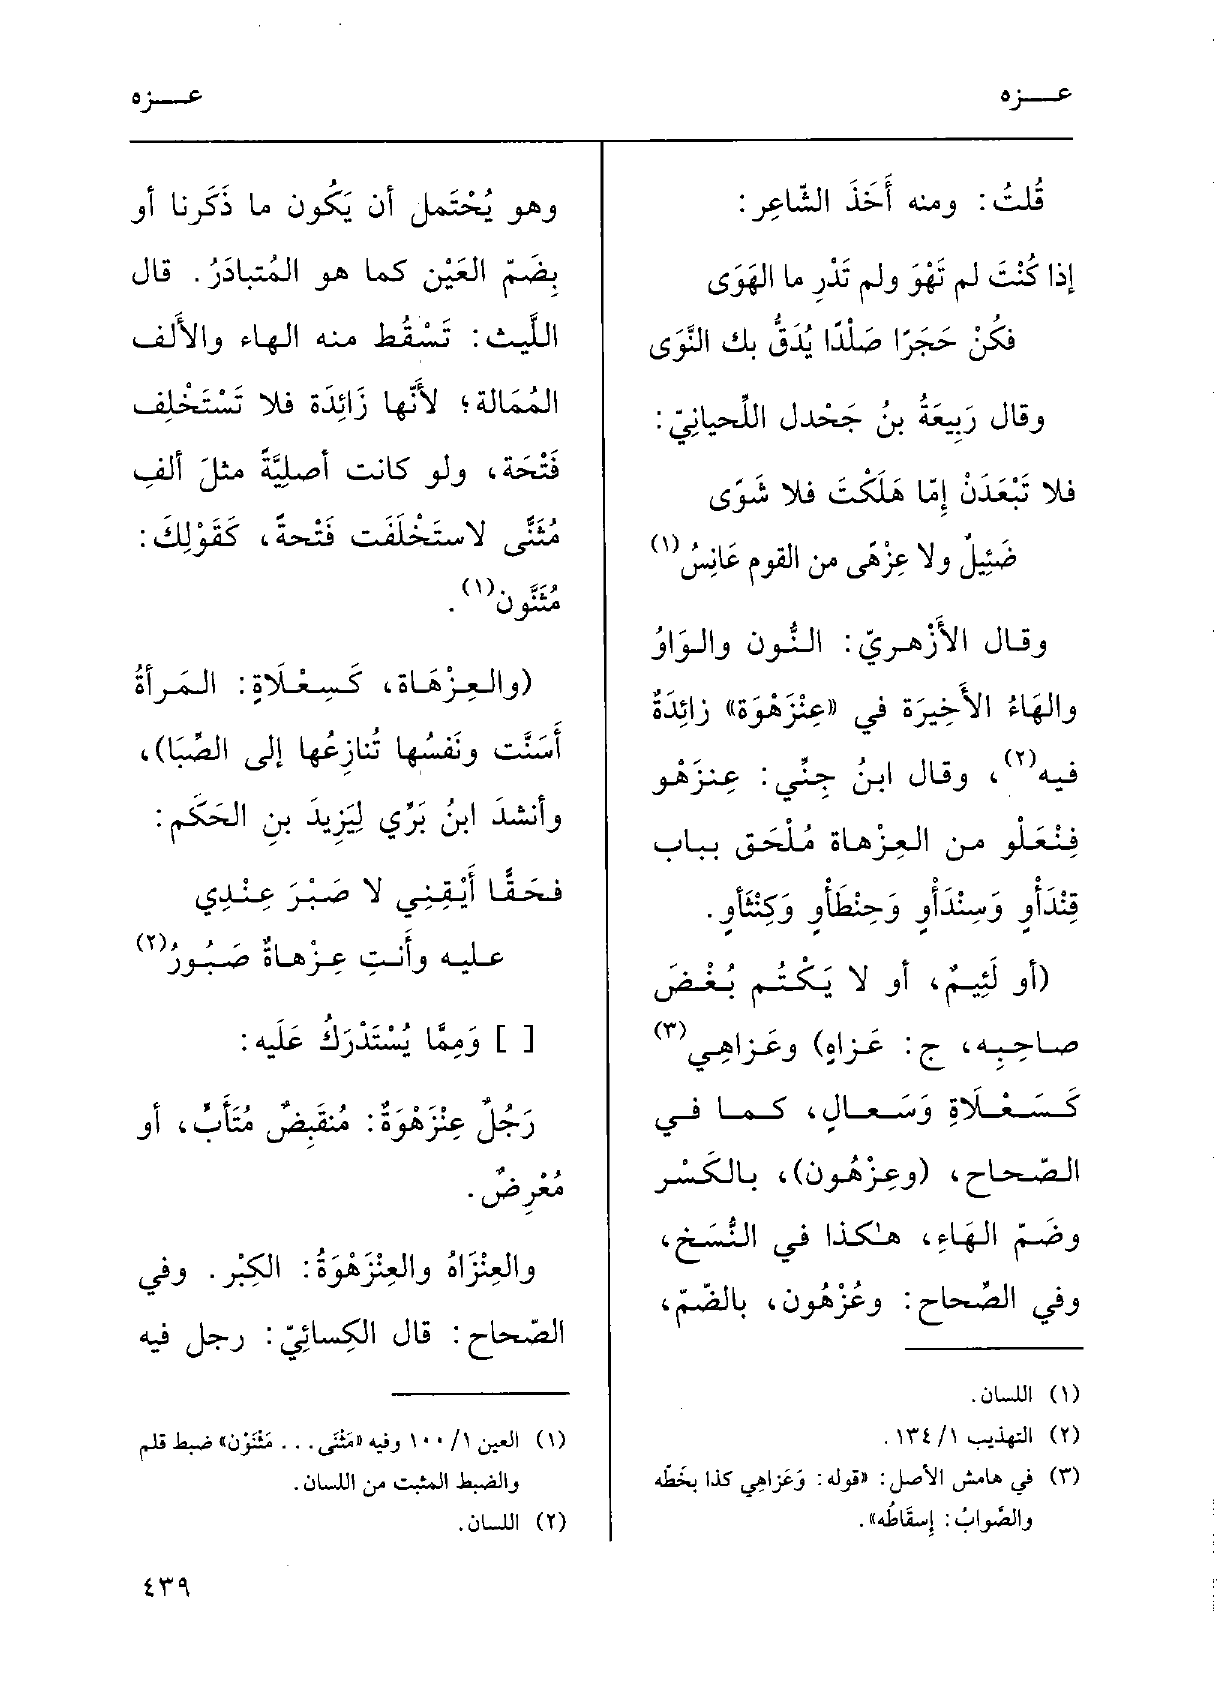 عـــزه
عـــزه
قُلتُ: ومنه أَخَذَ الشّاعِر:
إذا كُنْتَ لم تَهْوَ ولم تَدْرِ ما الهَوَى
فكُنْ حَجَرًا صَلْدًا يُدَقُّ بك النَّوَى
وقال رَبِيعَةُ بنُ جَحْدل اللِّحيانِيّ:
فلا تَبْعَدَنْ إمّا هَلَكْتَ فلا شَوًى
ضَئِيلٌ ولا عِزْهًى من القوم عَانِسُ(١)
وقال الأَزْهريّ: النُّون والوَاوُ
والهَاءُ الأَخِيرَة في «عِنْزَهْوَة» زائِدَةٌ
فيه(٢)، وقال ابنُ جِنِّي: عِنزَهْو
فِنْعَلْو من العِزْهاة مُلْحَق بباب
قِنْدَأْوٍ وَسِنْدَأْوٍ وَحِنْطَأْوٍ وَكِنْثَأْوٍ.
(أو لَئِيمٌ، أو لا يَكْتُم بُغْضَ
صاحِبِه، ج: عَزاهٍ) وعَزاهِي(٣)
كَسَعْلَاةٍ وَسَعالٍ، كما في
الصّحاح، (وعِزْهُون)، بالكَسْر
وضَمّ الهَاءِ، هكذا في النُّسَخ،
وفي الصِّحاح: وعُزْهُون، بالضّمّ،
(١) اللسان.
(٢) التهذيب ١/ ١٣٤.
(٣) في هامش الأصل: «قوله: وَعَزاهِي كذا بخَطّه
والصَّوابُ: إسقَاطُه».
وهو يُحْتَمل أن يَكُون ما ذَكَرنا أو
بِضَمّ العَيْن كما هو المُتبادَرُ. قال
اللَّيث: تَسْقُط منه الهاء والأَلف
المُمَالة؛ لأَنَّها زَائِدَة فلا تَسْتَخْلِف
فَتْحَة، ولو كانت أَصلِيَّةً مثلَ ألفِ
مُثَنًّى لاستَخْلَفَت فَتْحةً، كَقَوْلِكَ:
مُثَنَّون(١).
(والعِزْهَاة، كَسِعْلَاةٍ: المَرأةُ
أَسَنَّت ونَفسُها تُنازِعُها إلى الصِّبَا)،
وأنشدَ ابنُ بَرِّي لِيَزِيدَ بنِ الحَكَم:
فحَقًّا أَيْقِنِي لا صَبْرَ عِنْدِي
عليه وأَنتِ عِزْهاةٌ صَبُورُ(٢)
[ ] وَمِمَّا يُسْتَدْرَكُ عَلَيه:
رَجُلٌ عِنْزَهْوَةٌ: مُنقَبِضٌ مُتَأَبٍّ، أو
مُعْرِضٌ.
والعِنْزَاهُ والعِنْزَهْوَةُ: الكِبْر. وفي
الصّحاح: قال الكِسائِيّ: رجل فيه
(١) العين ١/ ١٠٠ وفيه «مَثْنَى... مَثْنَوْن» ضبط قلم
والضبط المثبت من اللسان.
(٢) اللسان.
٤٣٩